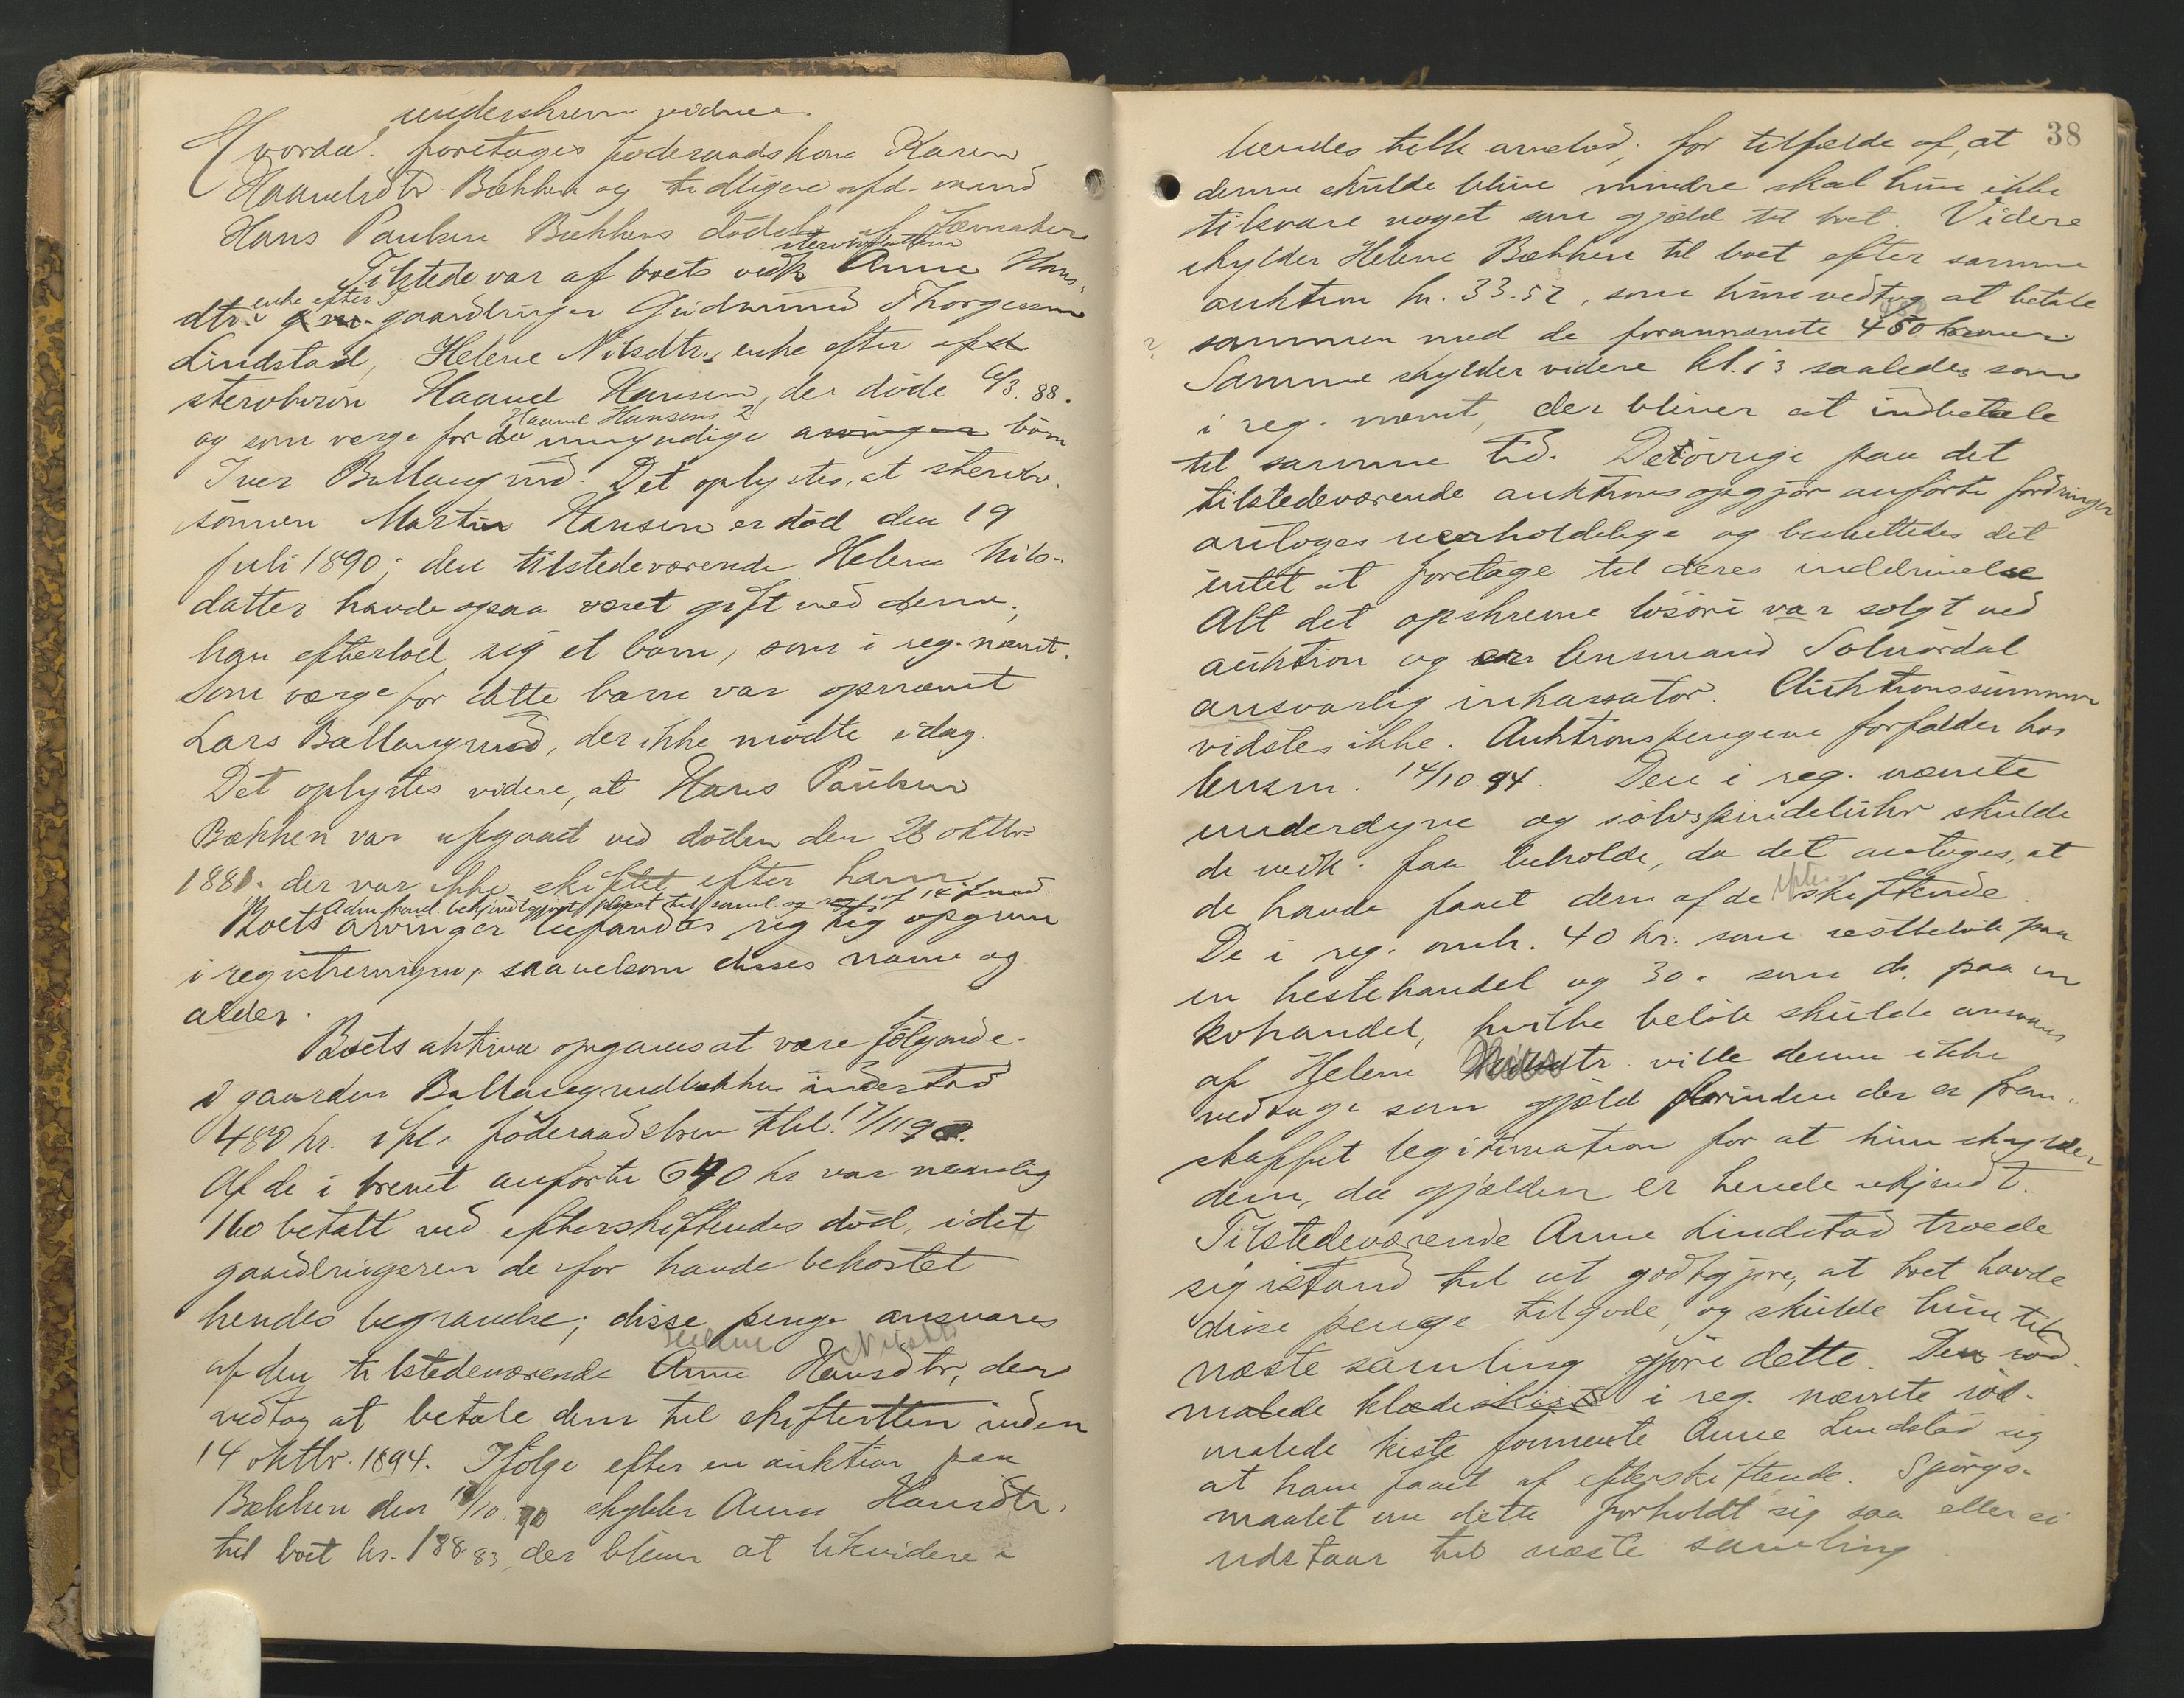 underskrevne vidner
Hvorda. foretoges föderaadskone Karen
Haavelsdtr. Bækken og tidligere afd. mand
Hans Paulsen Bækkens dödsbo af Jævnaker
Tilstede var af boets vedk. stervbodatteren Anne Hans-
dtr. enke efter gaardbruger Gudmund Thorgersen
Lindstad, Helene Nilsdtr., enke efter afd
stervbosön Haavel Hansen, der döde 6/3. 88.
og som verge for de Haavel Hansens 2 umyndige arvinger börn
Iver Ballangrud. Det oplystes, at stervbo-
sönnen Martin Hansen er död den 19
juli 1890; den tilstedeværende Helene Nils-
datter havde ogsaa været gift med denne;
han efterlod sig et barn, som i reg. nævnt.
Som værge for dette barn var opnævnt
Lars Ballangrud, der ikke mödte idag.
Det oplystes videre, at Hans Paulsen
Bækken var afgaaet ved döden den 28 oktbr.
1881. der var ikke skiftet efter ham
Boets arvinger befandtes sig rig opgivne
i registreringen, saavelsom disses navne og
alder.
Boets aktiva opgaves at være fölgende.
I gaarden Ballangrudbækken indestod
480 kr. ifl. föderaadsbrev thl. 17/11 90.
Af de i brevet anförte 640 kr var nemlig
160 betalt ved efterskiftendes död, idet
gaardbrugeren derfor havde bekostet
hendes begravelse; disse penge ansvares
af den tilstedeværende Anne Helene Hansdtr Nilsdtr, der
vedtog at betale dem til skifteretten inden
14 oktbr. 1894. Ifölge efter en auktion paa
Bækken den 18/10. 90 skylder Anne Hansdtr.
til boet kr. 188.83, der bliver at likvidere i
38
hendes tilk. arvelod; for tilfælde af, at
denne skulde blive mindre skal hun ikke
tilsvare noget som gjæld til boet. Videre
skylder Helene Bækken til boet efter samme
auktion kr. 33.52, som hun vedtog at betale
sammen med de forannævnte 480 kroner
Samme skylder videre kl. 13 saaledes som
i reg. nævnt, der bliver at indbetale
til samme tid. Detövrige paa det
tilstedeværende auktionsopgjör anförte fordringer
antoges uerholdelige og besluttedes det
intet at foretage til deres inddrivelse
Alt det opskrevne lösöre var solgt ved
auktion og er lensmand Solnördal
ansvarlig inkassator. Auktionssummen
vidstes ikke. Auktionspengene forfalder hos
lensm. 14/10 94. Den i reg. nævnte
underdyne og sölvspindeluhr skulde
de vedk. faa beholde, da det antoges, at
de havde faaet dem af de efterskiftende.
De i reg. omh. 40 kr. som restbelöb paa
en hestehandel og 30. som do. paa en
kohandel, hvilke belöb skulde ansvares
af Helene Nilsdtr. ville denne ikke
vedtage som gjæld forinden der er frem-
skaffet legitimation for at hun skylder
dem, da gjælden er hende ukjendt.
Tilstedeværende Anne Lindstad troede
sig istand til at godtgjöre, at boet havde
disse penge tilgode, og skulde hun til
næste samling gjöre dette. Den röd-
malede klædeskiste i reg. nævnte röd-
malede kiste formente Anne Lindstad sig
at have faaet af efterskiftende. Spörgs-
maalet om dette forholdt sig saa eller ei
udstaar til næste samling